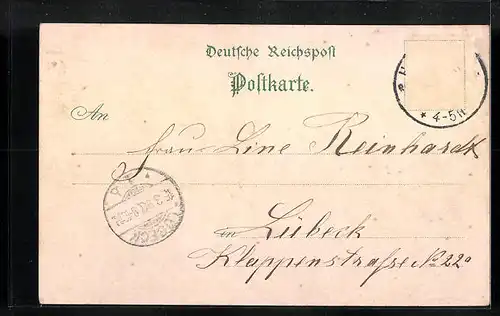 Deutsche Reichspost
Postkarte.
An
Frau Line Reinhardt
in Lübeck
Klappenstraße No 22a
* 4-5N
LÜBECK